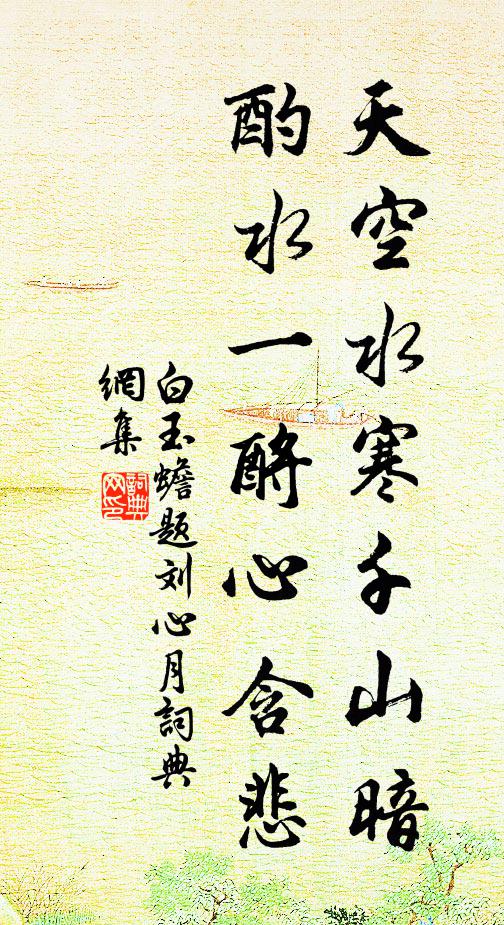 天空水寒千山暗
酌水一酹心含悲
白玉蟾题刘心月詞典
網集
詞典
网印